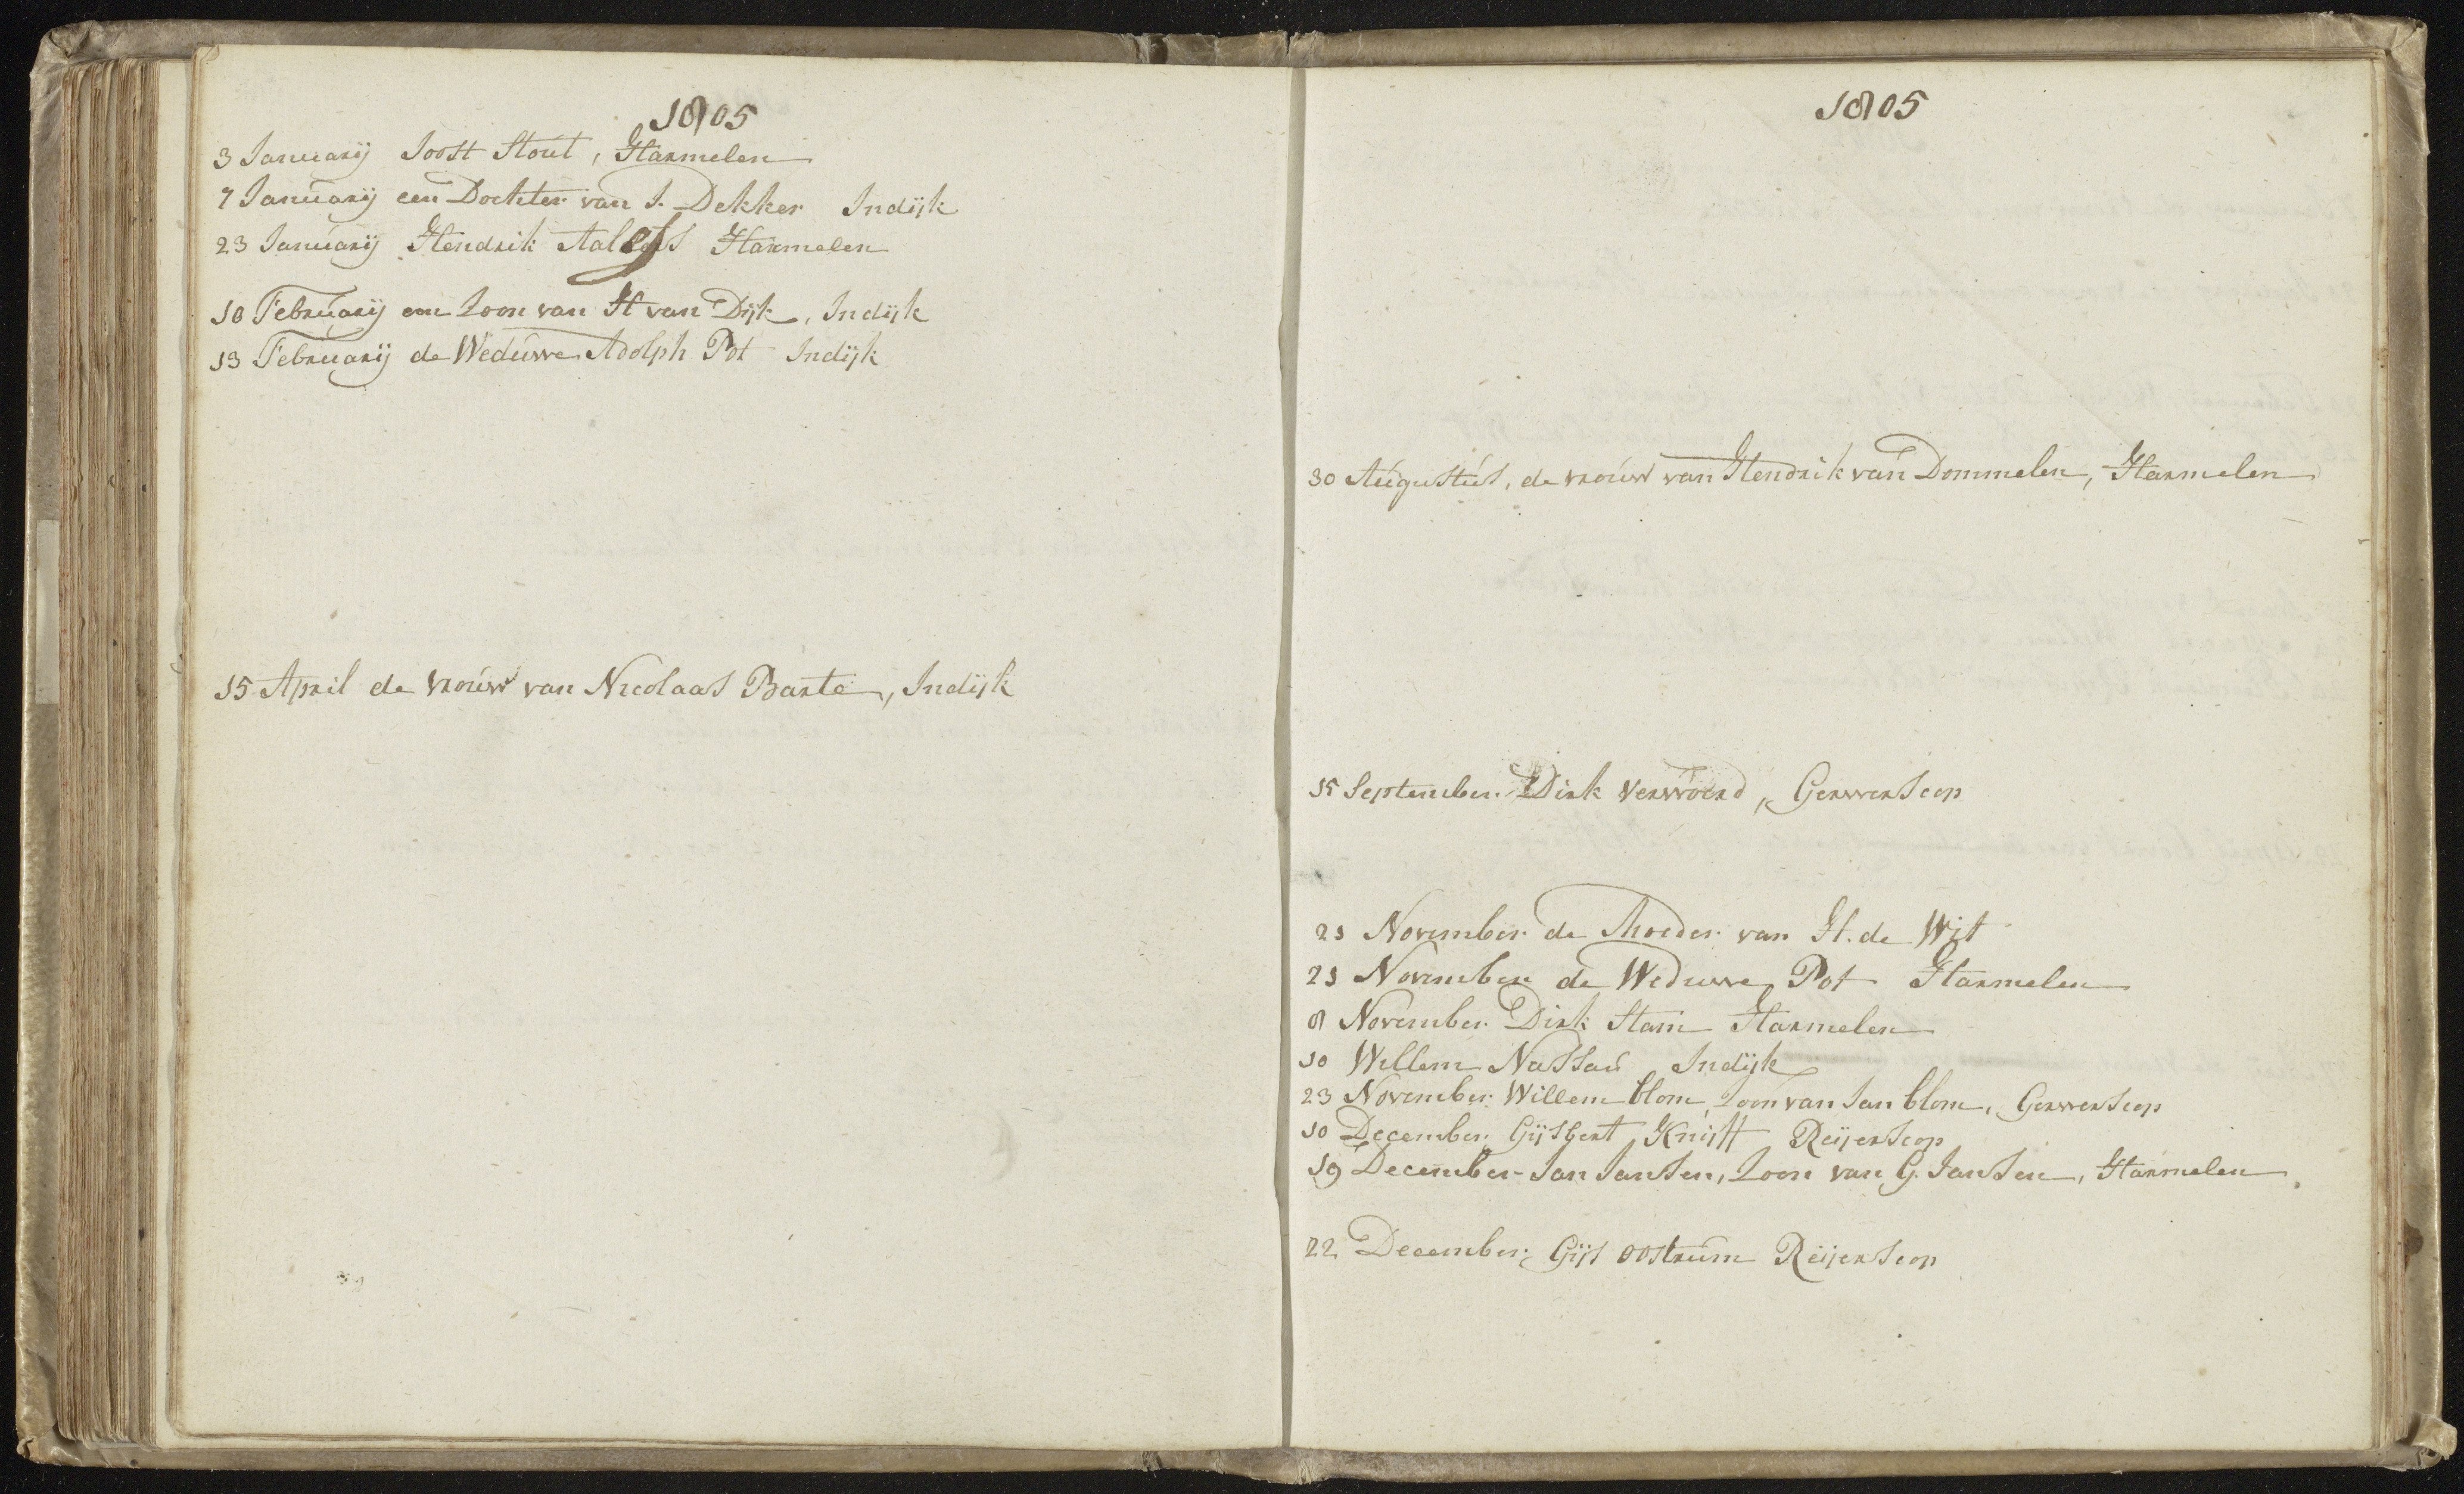 1805
3 Januarij Joost Stout, Harmelen
7 Januarij een Dochter van J. Dekker Indijk
23 Januarij Hendrik Harmelen
10 Februarij een Zoon van H van Dijk, Indijk
13 Februarij de Weduwe Adolph Pot Indijk
15 April de vrouw van Nicolaas Barte, Indijk
1805
30 Augustus, de vrouw van Hendrik van Dommelen, Harmelen
15 September Dirk Verwoerd, Gerverscop
21 November de Moeder van H. de Wit
21 November de Weduwe Pot Harmelen
8 November Dirk Stam Harmelen
10 Willem Nassau Indijk
23 November Willem blom, Zoon van Jan blom, Gerverscop
10 December Gijsbert Knijff Reijerscop
19 December Jan Jansen, Zoon van G. Jansen, Harmelen
22 December Gijs oostrum Reijerscop